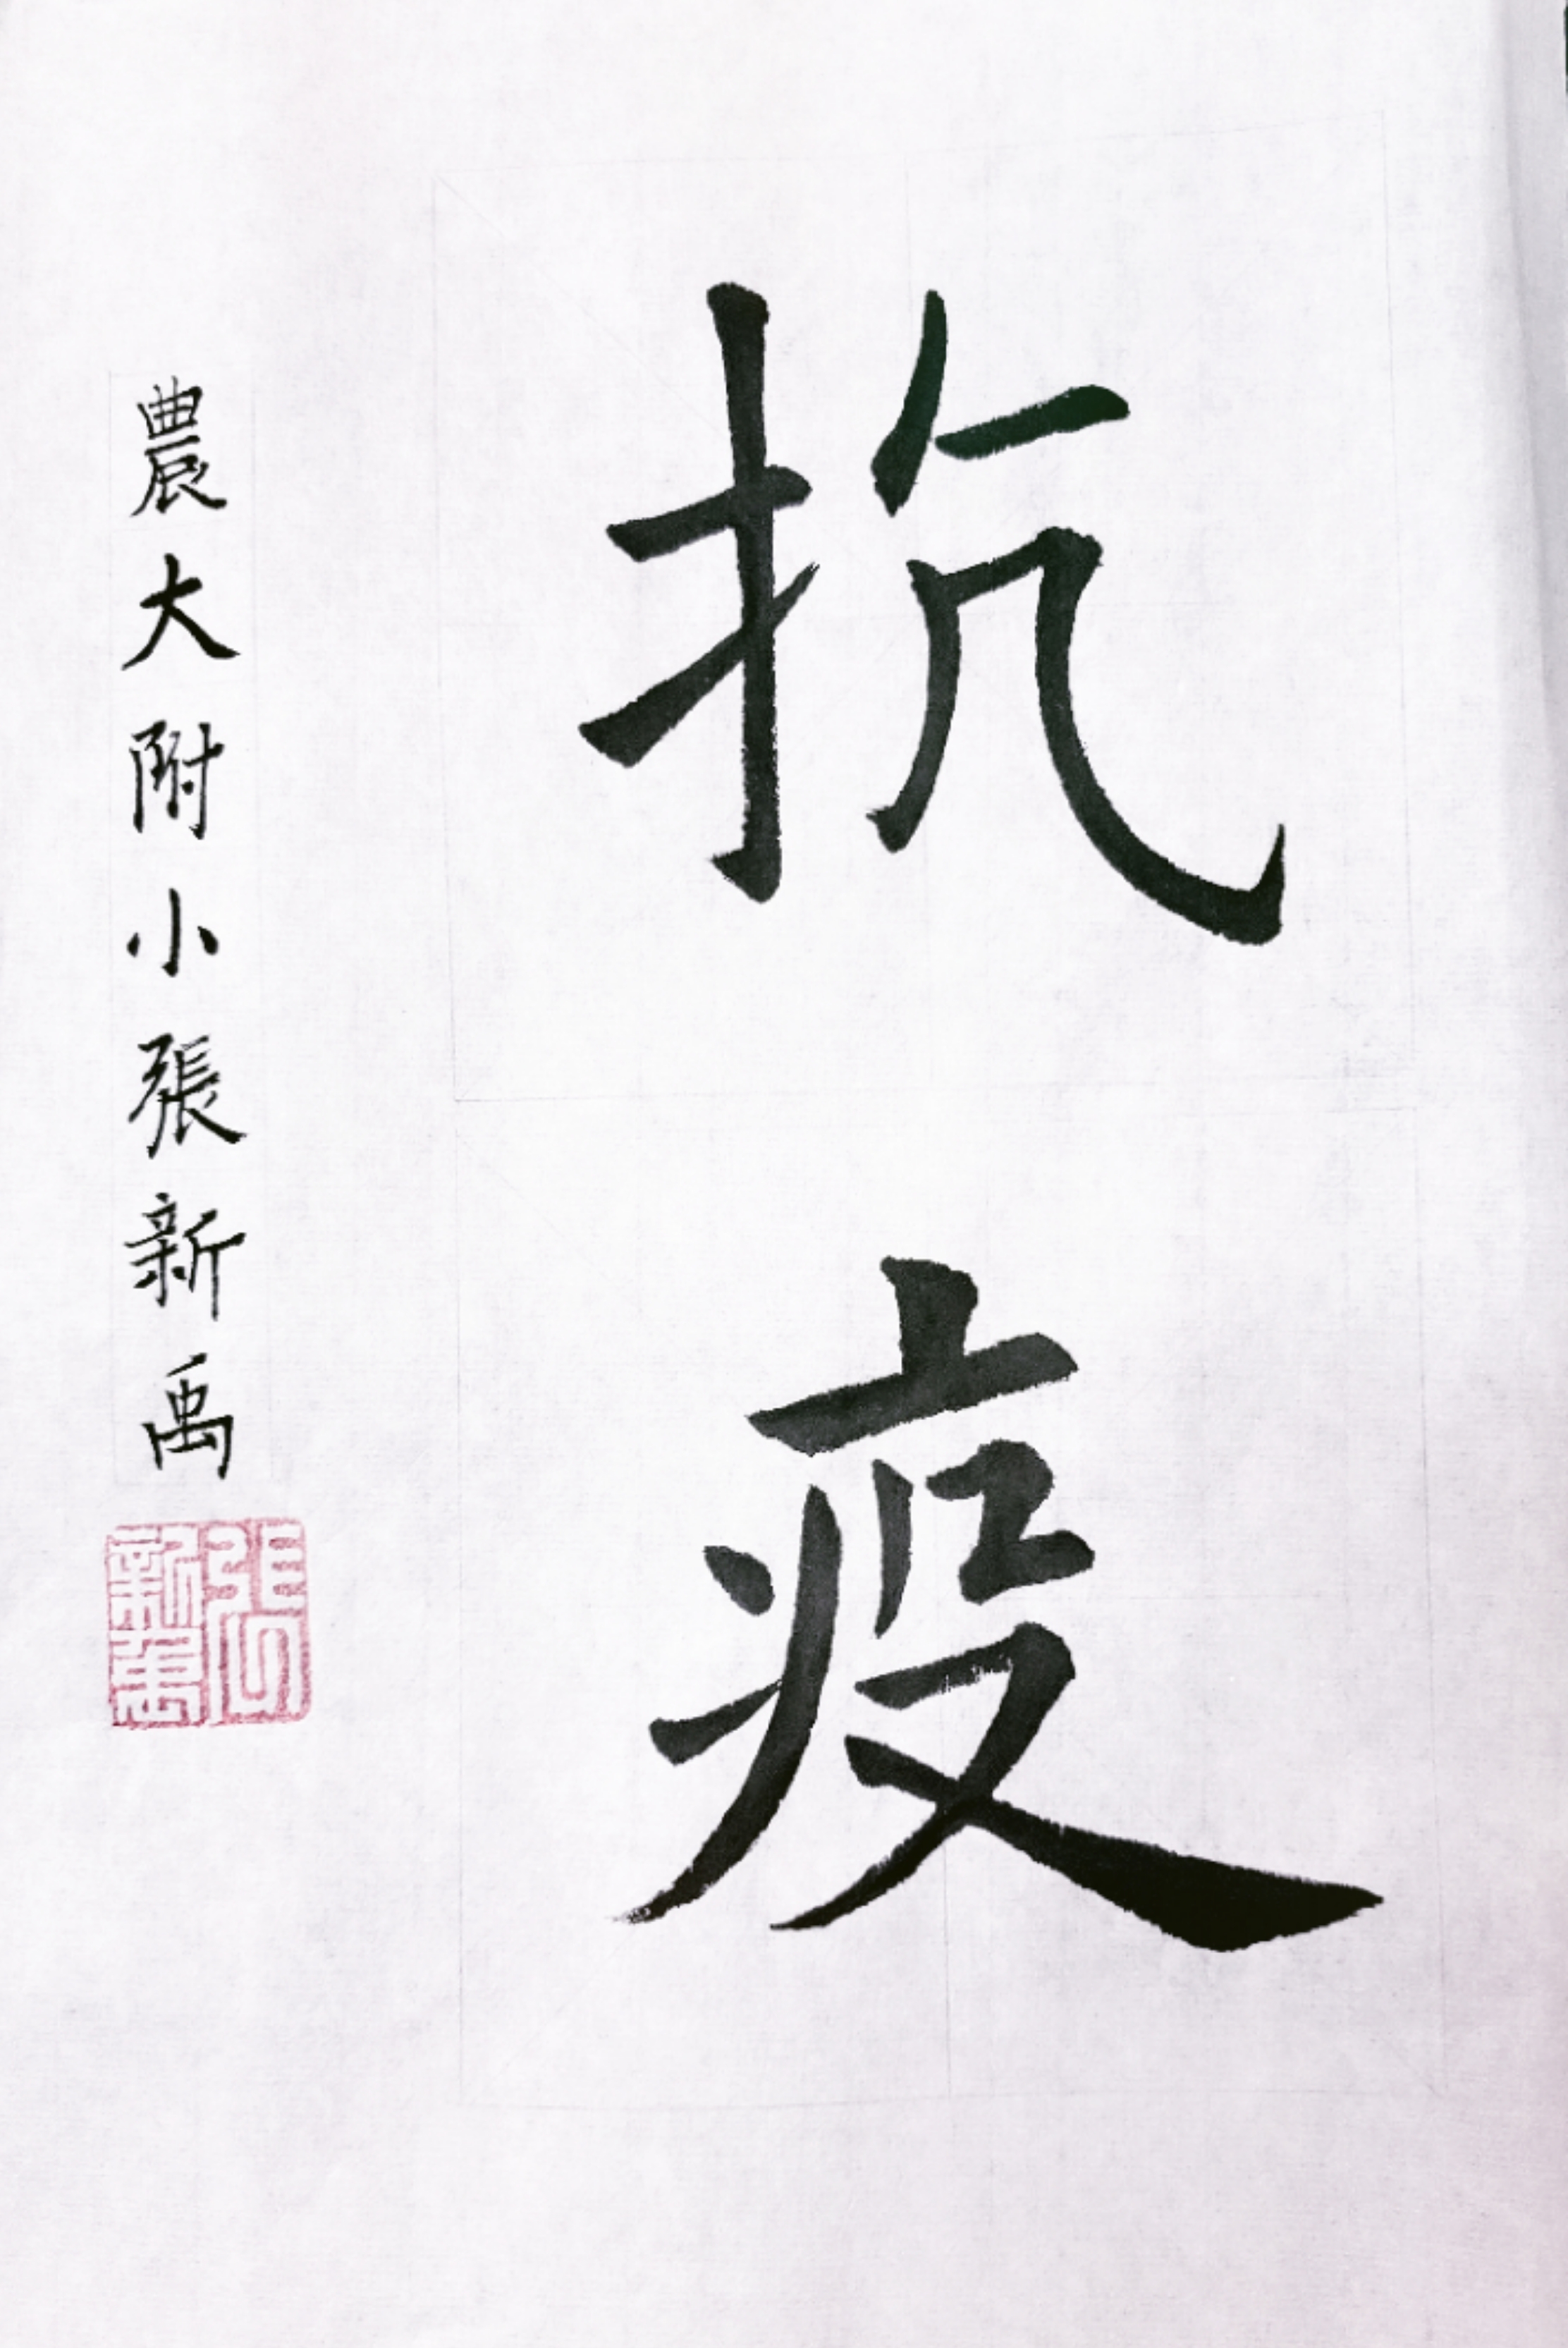 抗疫
農大附小張新禹
張新禹